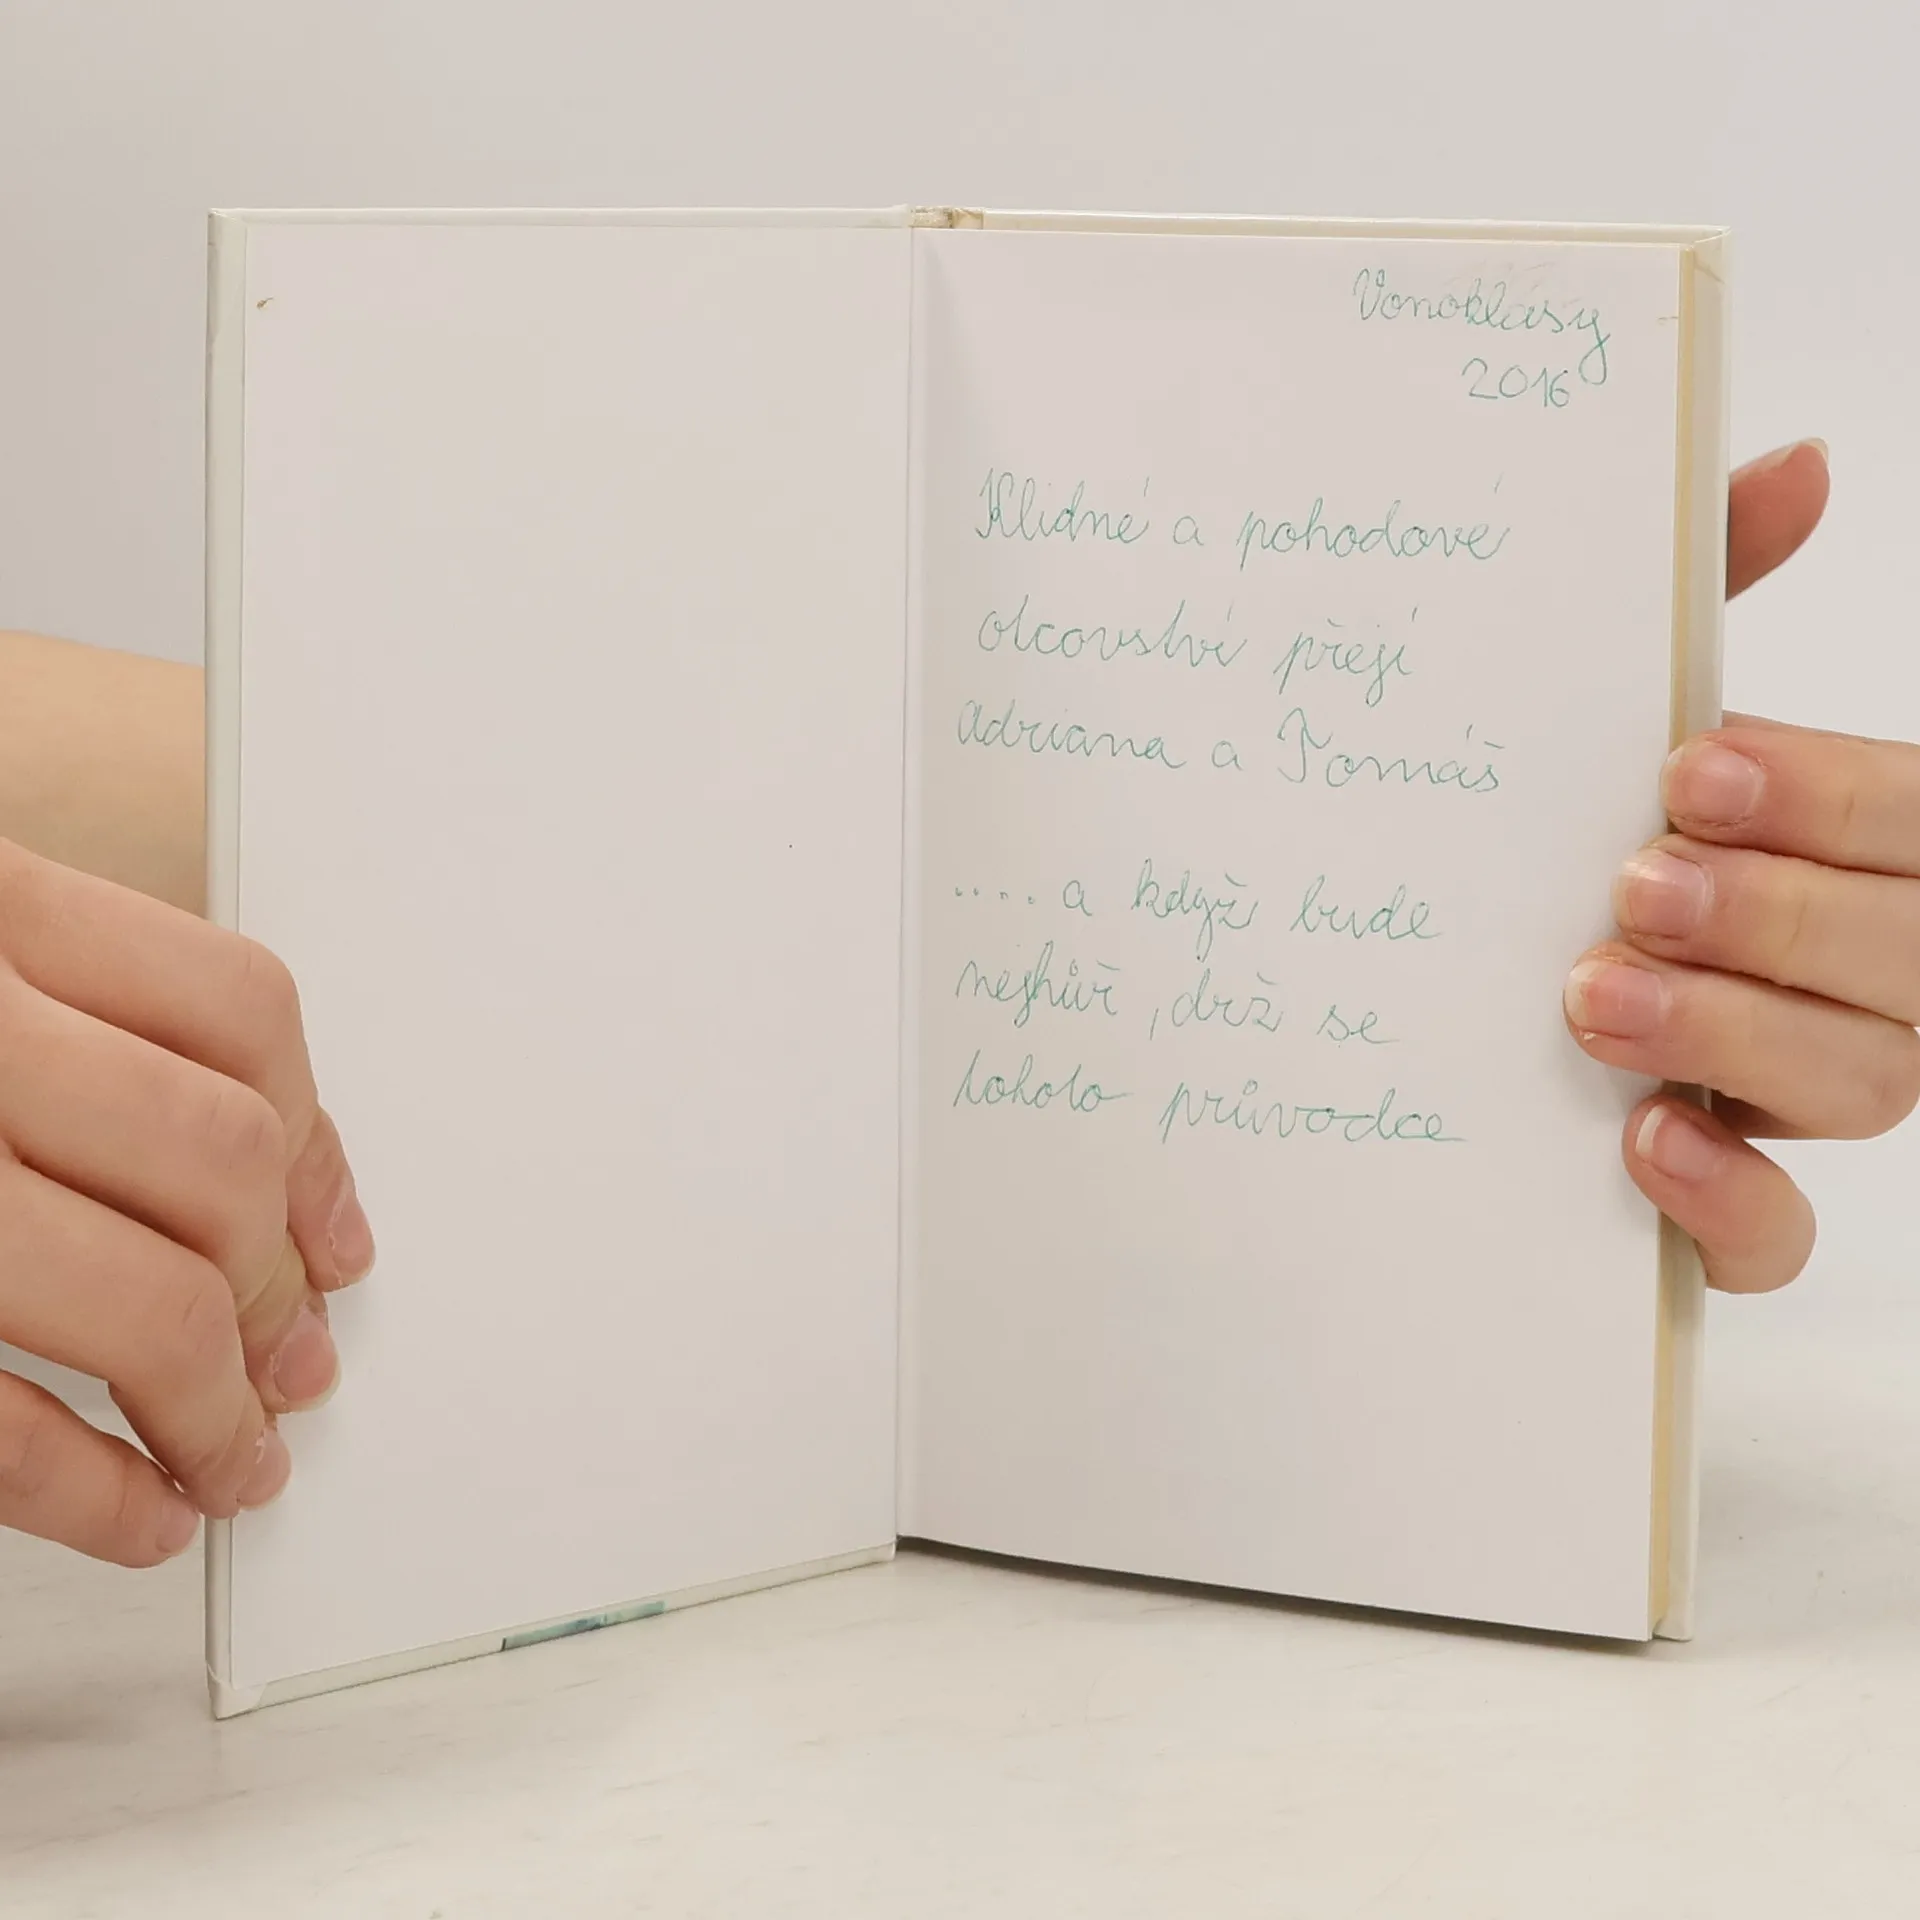 Vonoklasy
2016
Klidné a pohodové
otcovství přejí
Adriana a Tomáš
.... a když bude
nejhůř, drž se
tohoto průvodce